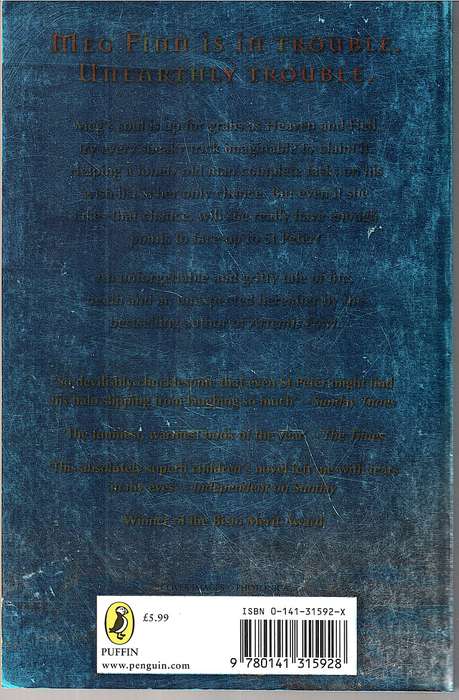 MEG FINN IS IN TROUBLE.
UNEARTHLY TROUBLE.
Meg's soul is up for grabs as Heaven and Hell
try every sneaky trick imaginable to claim it.
Helping a lonely old man complete tasks on his
wish list is her only chance. But even if she
takes that chance, will she really have enough
points to face up to St Peter?
An unforgettable and gritty tale of life,
death and an unexpected hereafter by the
bestselling author of Artemis Fowl.
'So devilishly chucklesome that even St Peter might find
his halo slipping from laughing so much' – Sunday Times
'The funniest, warmest book of the year' – The Times
'This absolutely superb children's novel left me with tears
in my eyes' – Independent on Sunday
Winner of the Bisto Merit Award
£5.99
PUFFIN
www.penguin.com
ISBN 0-141-31592-X
9 780141 315928